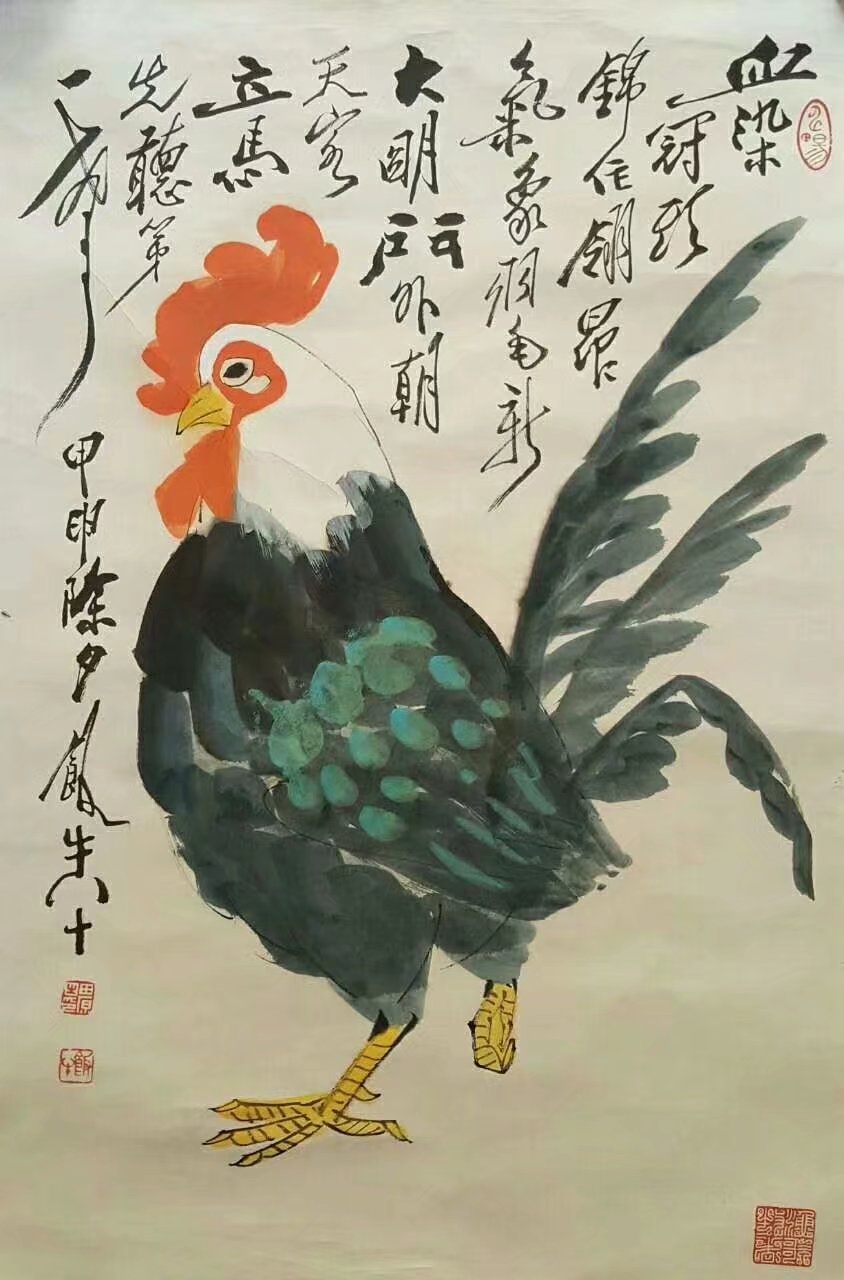 血染
冠頭
錦作翎昂
氣象羽毛新
大明門外朝
天客
立馬
先聽第
一聲
甲申除夕飯牛八十
飯牛